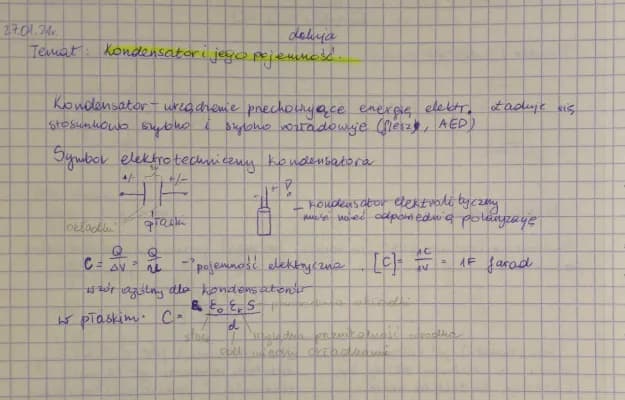 27.01.21r.
Temat: Kondensator i jego pojemność.
Kondensator - urządzenie przechowujące energię elektr. Ładuje się
stosunkowo szybko i szybko rozładowuje (flesz, AED)
Symbol elektrotechniczny kondensatora
+/- +/-
- + !
okładki płaski
- kondensator elektrolityczny
musi mieć odpowiednią polaryzację
C = Q/ΔV = Q/U → pojemność elektryczna, [C] = 1C/1V = 1F farad
wzór ogólny dla kondensatorów
w płaskim: C = ε₀ εᵣ S / d
powierzchnia okładki
stała względna przenikalność ośrodka
odl. między okładkami